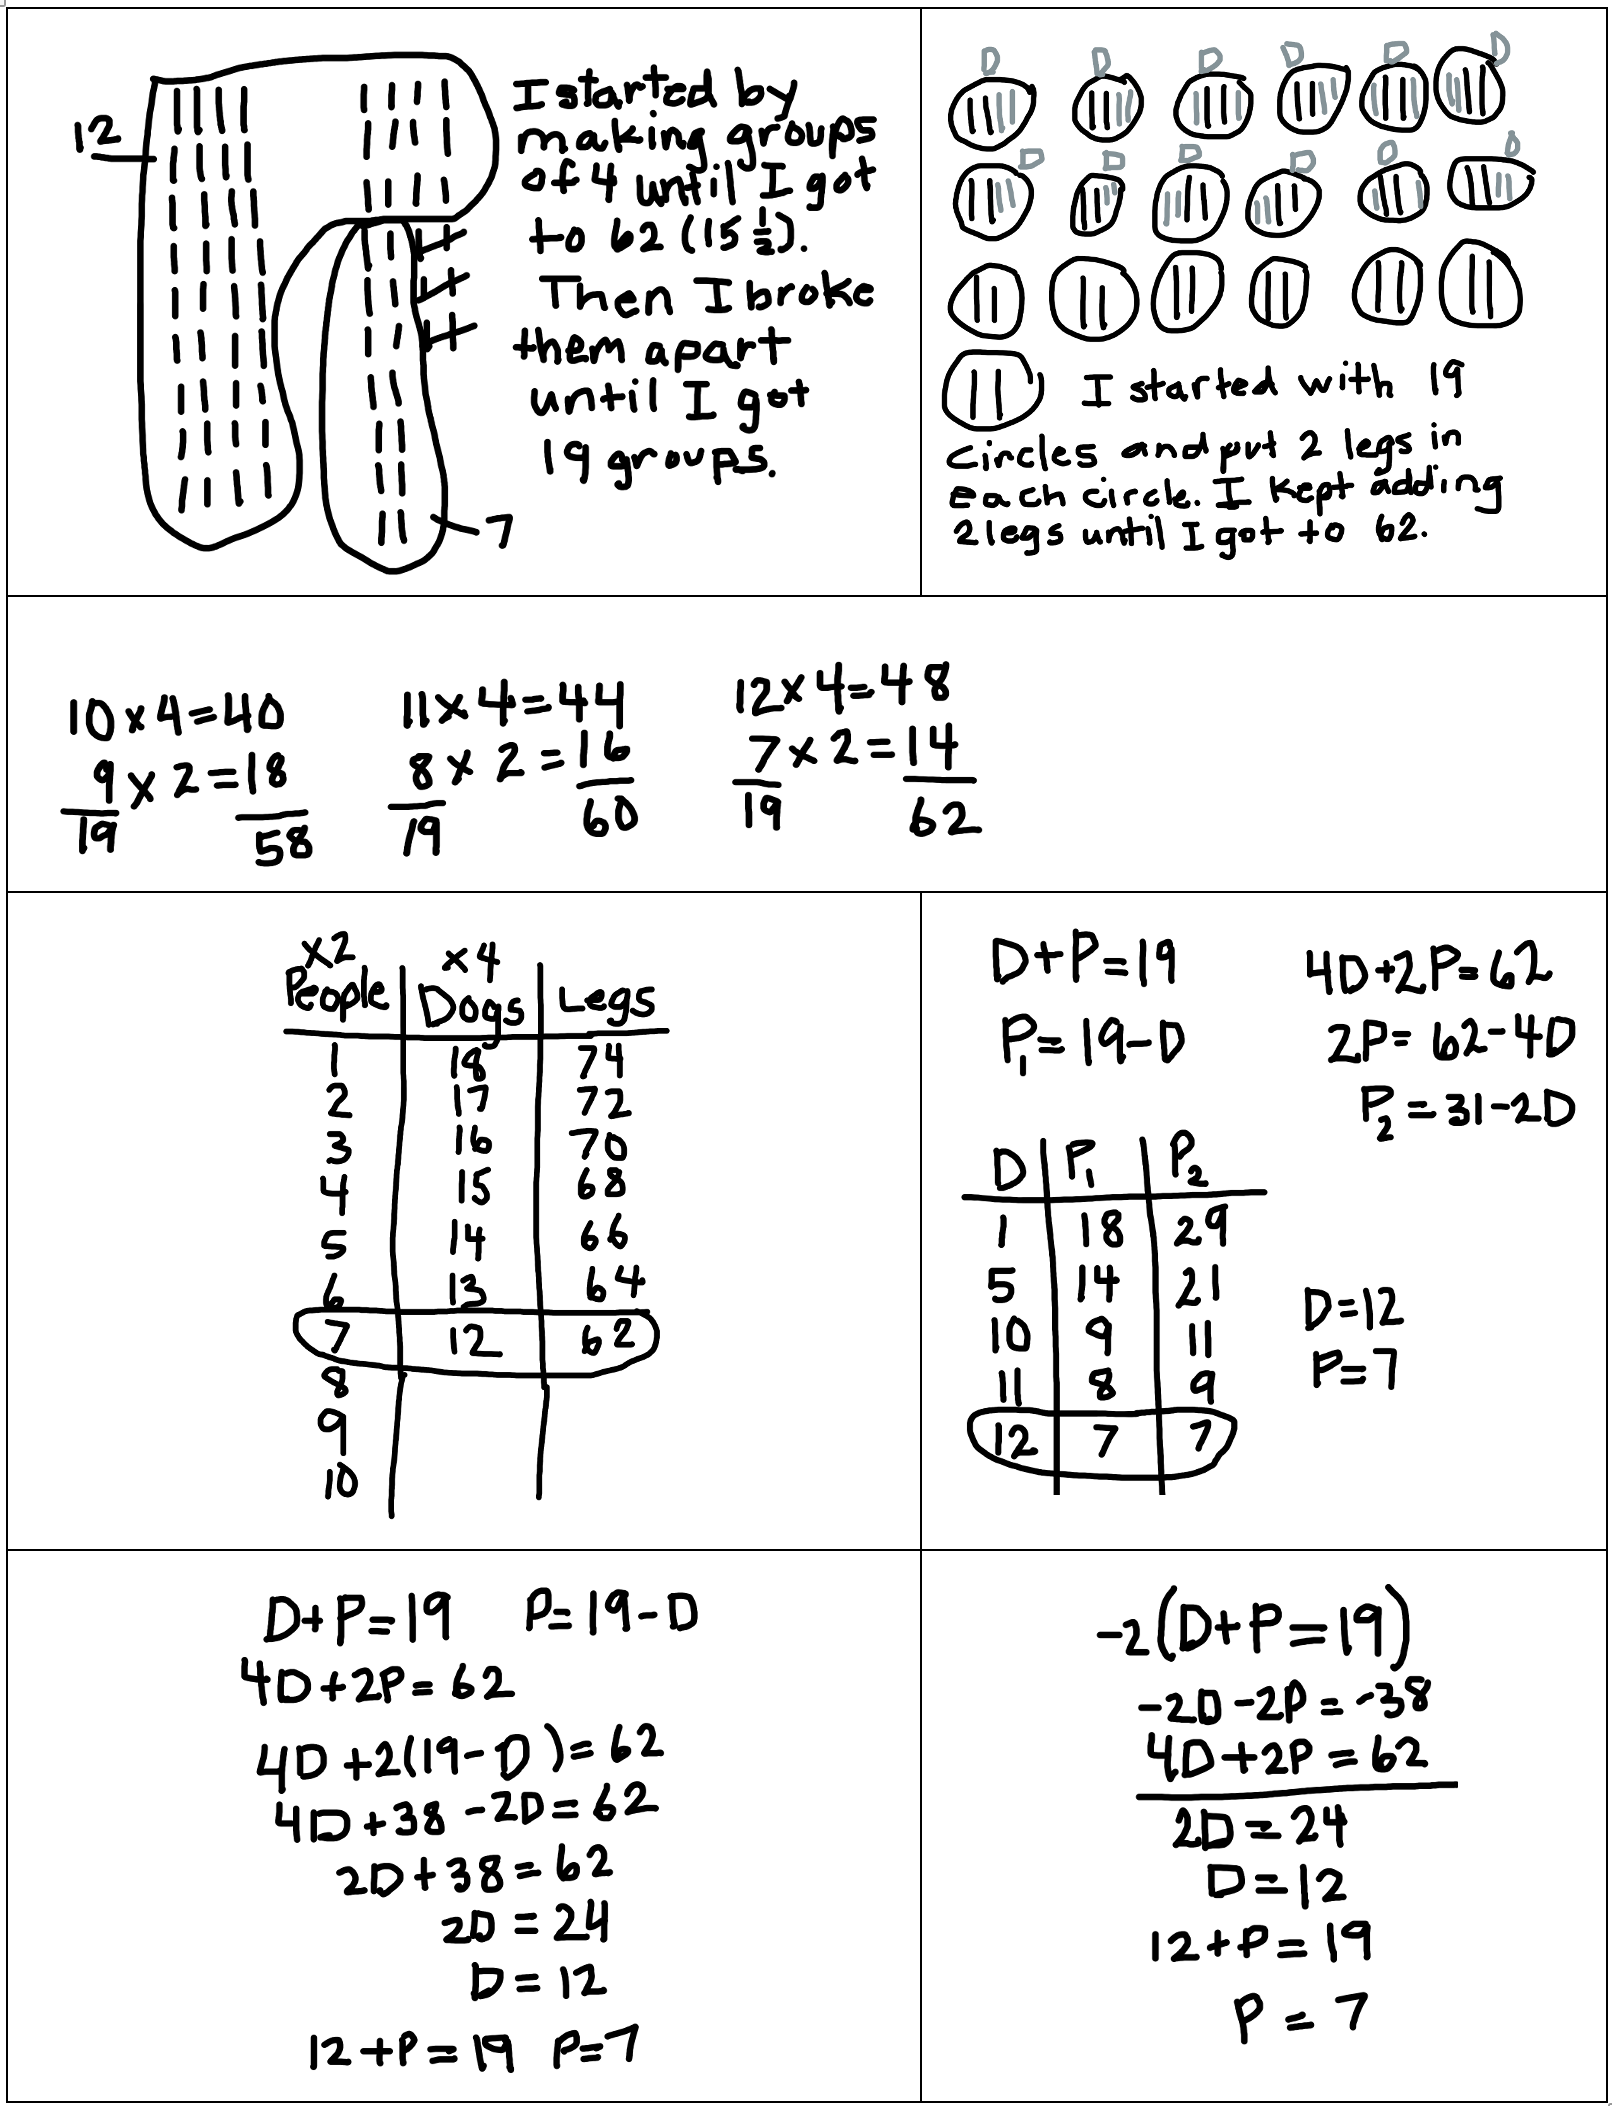 12
I started by
making groups
of 4 until I got
to 62 (15 ½).
Then I broke
them apart
until I got
19 groups.
7
D D D D D D
D D D D D D
I started with 19
circles and put 2 legs in
each circle. I kept adding
2 legs until I got to 62.
10 x 4 = 40
9 x 2 = 18
19 58
11 x 4 = 44
8 x 2 = 16
19 60
12 x 4 = 48
7 x 2 = 14
19 62
x2 x4
People Dogs Legs
1 18 74
2 17 72
3 16 70
4 15 68
5 14 66
6 13 64
7 12 62
8
9
10
D+P=19
P₁=19-D
4D+2P=62
2P=62-4D
P₂=31-2D
D P₁ P₂
1 18 29
5 14 21
10 9 11
11 8 9
12 7 7
D=12
P=7
D+P=19 P=19-D
4D+2P=62
4D+2(19-D)=62
4D+38-2D=62
2D+38=62
2D=24
D=12
12+P=19 P=7
-2(D+P=19)
-2D-2P=-38
4D+2P=62
2D=24
D=12
12+P=19
P=7